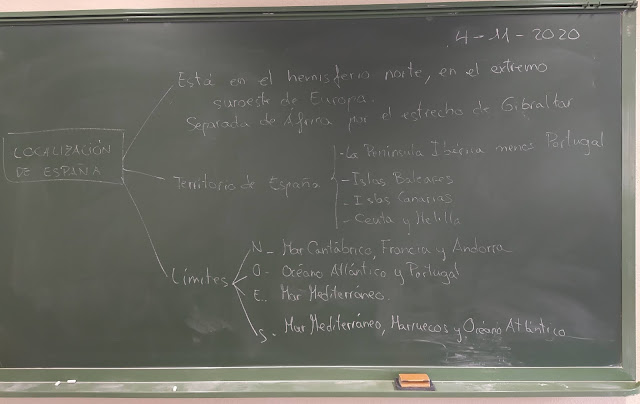 4-11-2020
Está en el hemisferio norte, en el extremo
suroeste de Europa.
Separada de África por el estrecho de Gibraltar
LOCALIZACIÓN
DE ESPAÑA
Territorio de España
- La Península Ibérica menos Portugal
- Islas Baleares
- Islas Canarias
- Ceuta y Melilla
Límites
N - Mar Cantábrico, Francia y Andorra
O - Océano Atlántico y Portugal
E. Mar Mediterráneo.
S. Mar Mediterráneo, Marruecos y Océano Atlántico